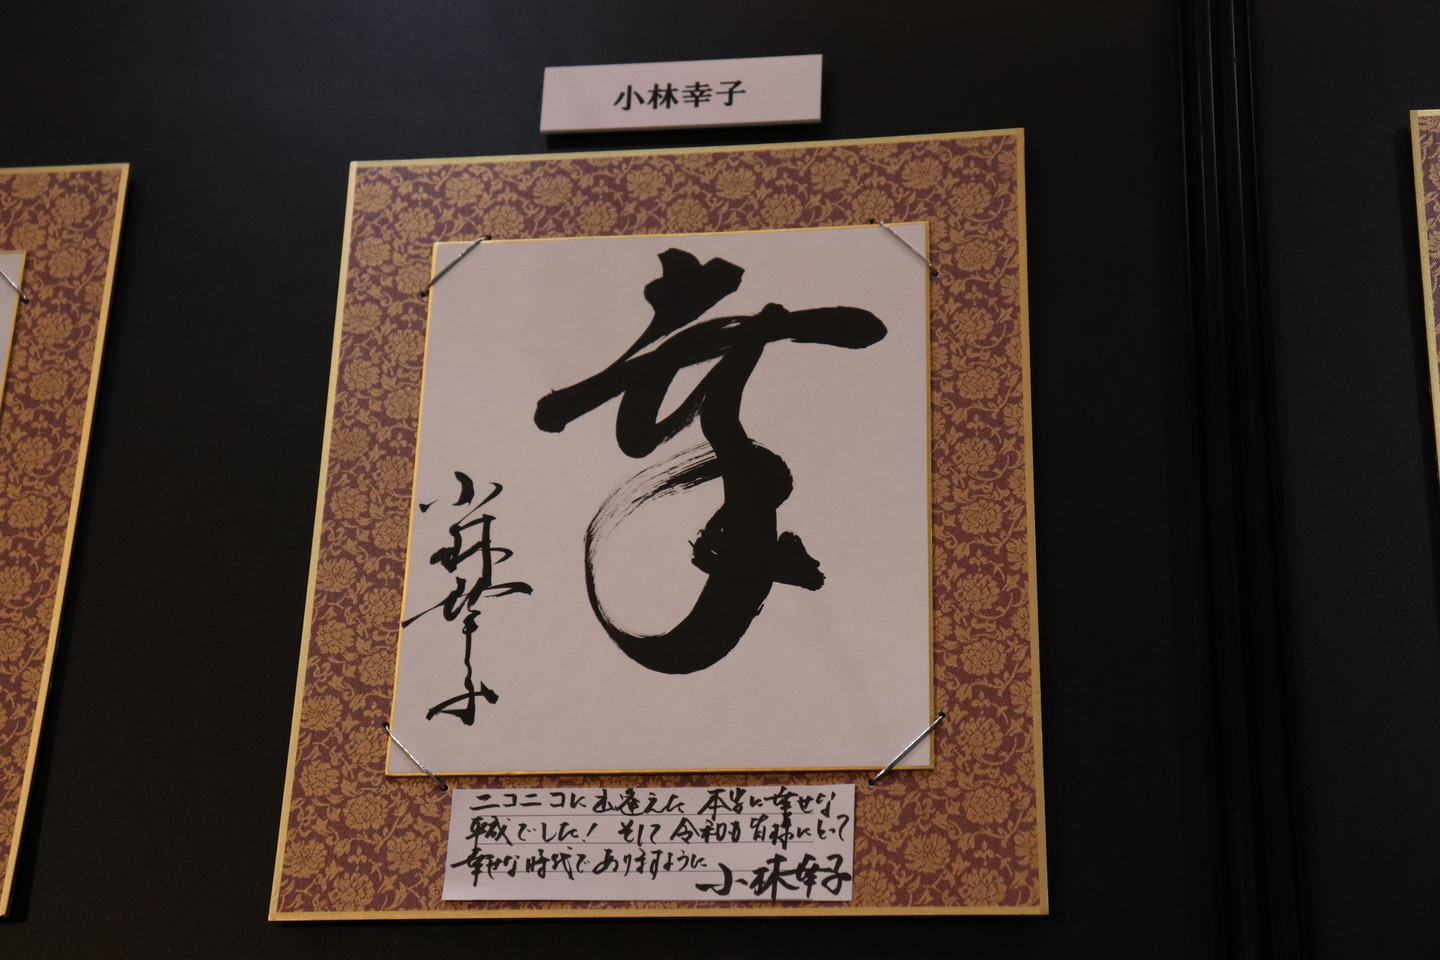 小林幸子
幸
小林幸子
ニコニコに出逢えた 本当に幸せな
平成でした! そして令和が皆様にとって
幸せな時代でありますように
小林幸子